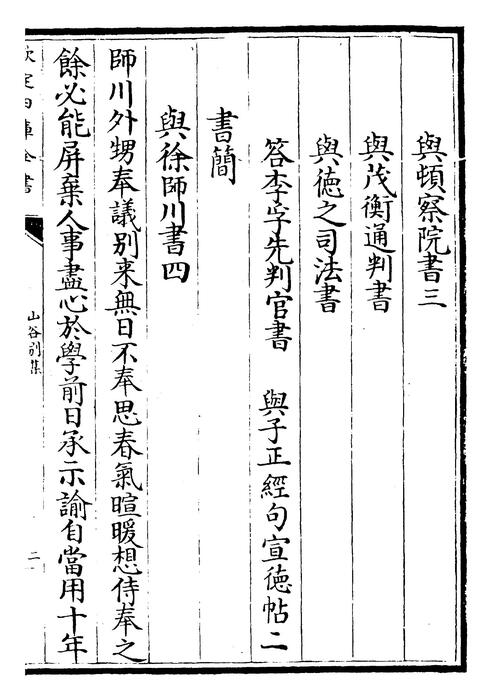 與頓察院書三
與茂衡通判書
與徳之司法書
答李孚先判官書　與子正經句宣徳帖二
書簡
與徐師川書四
師川外甥奉議别来無日不奉思春氣暄暖想侍奉之
餘必能屏棄人事盡心於學前日承示諭自當用十年
欽定四庫全書
山谷别集
二